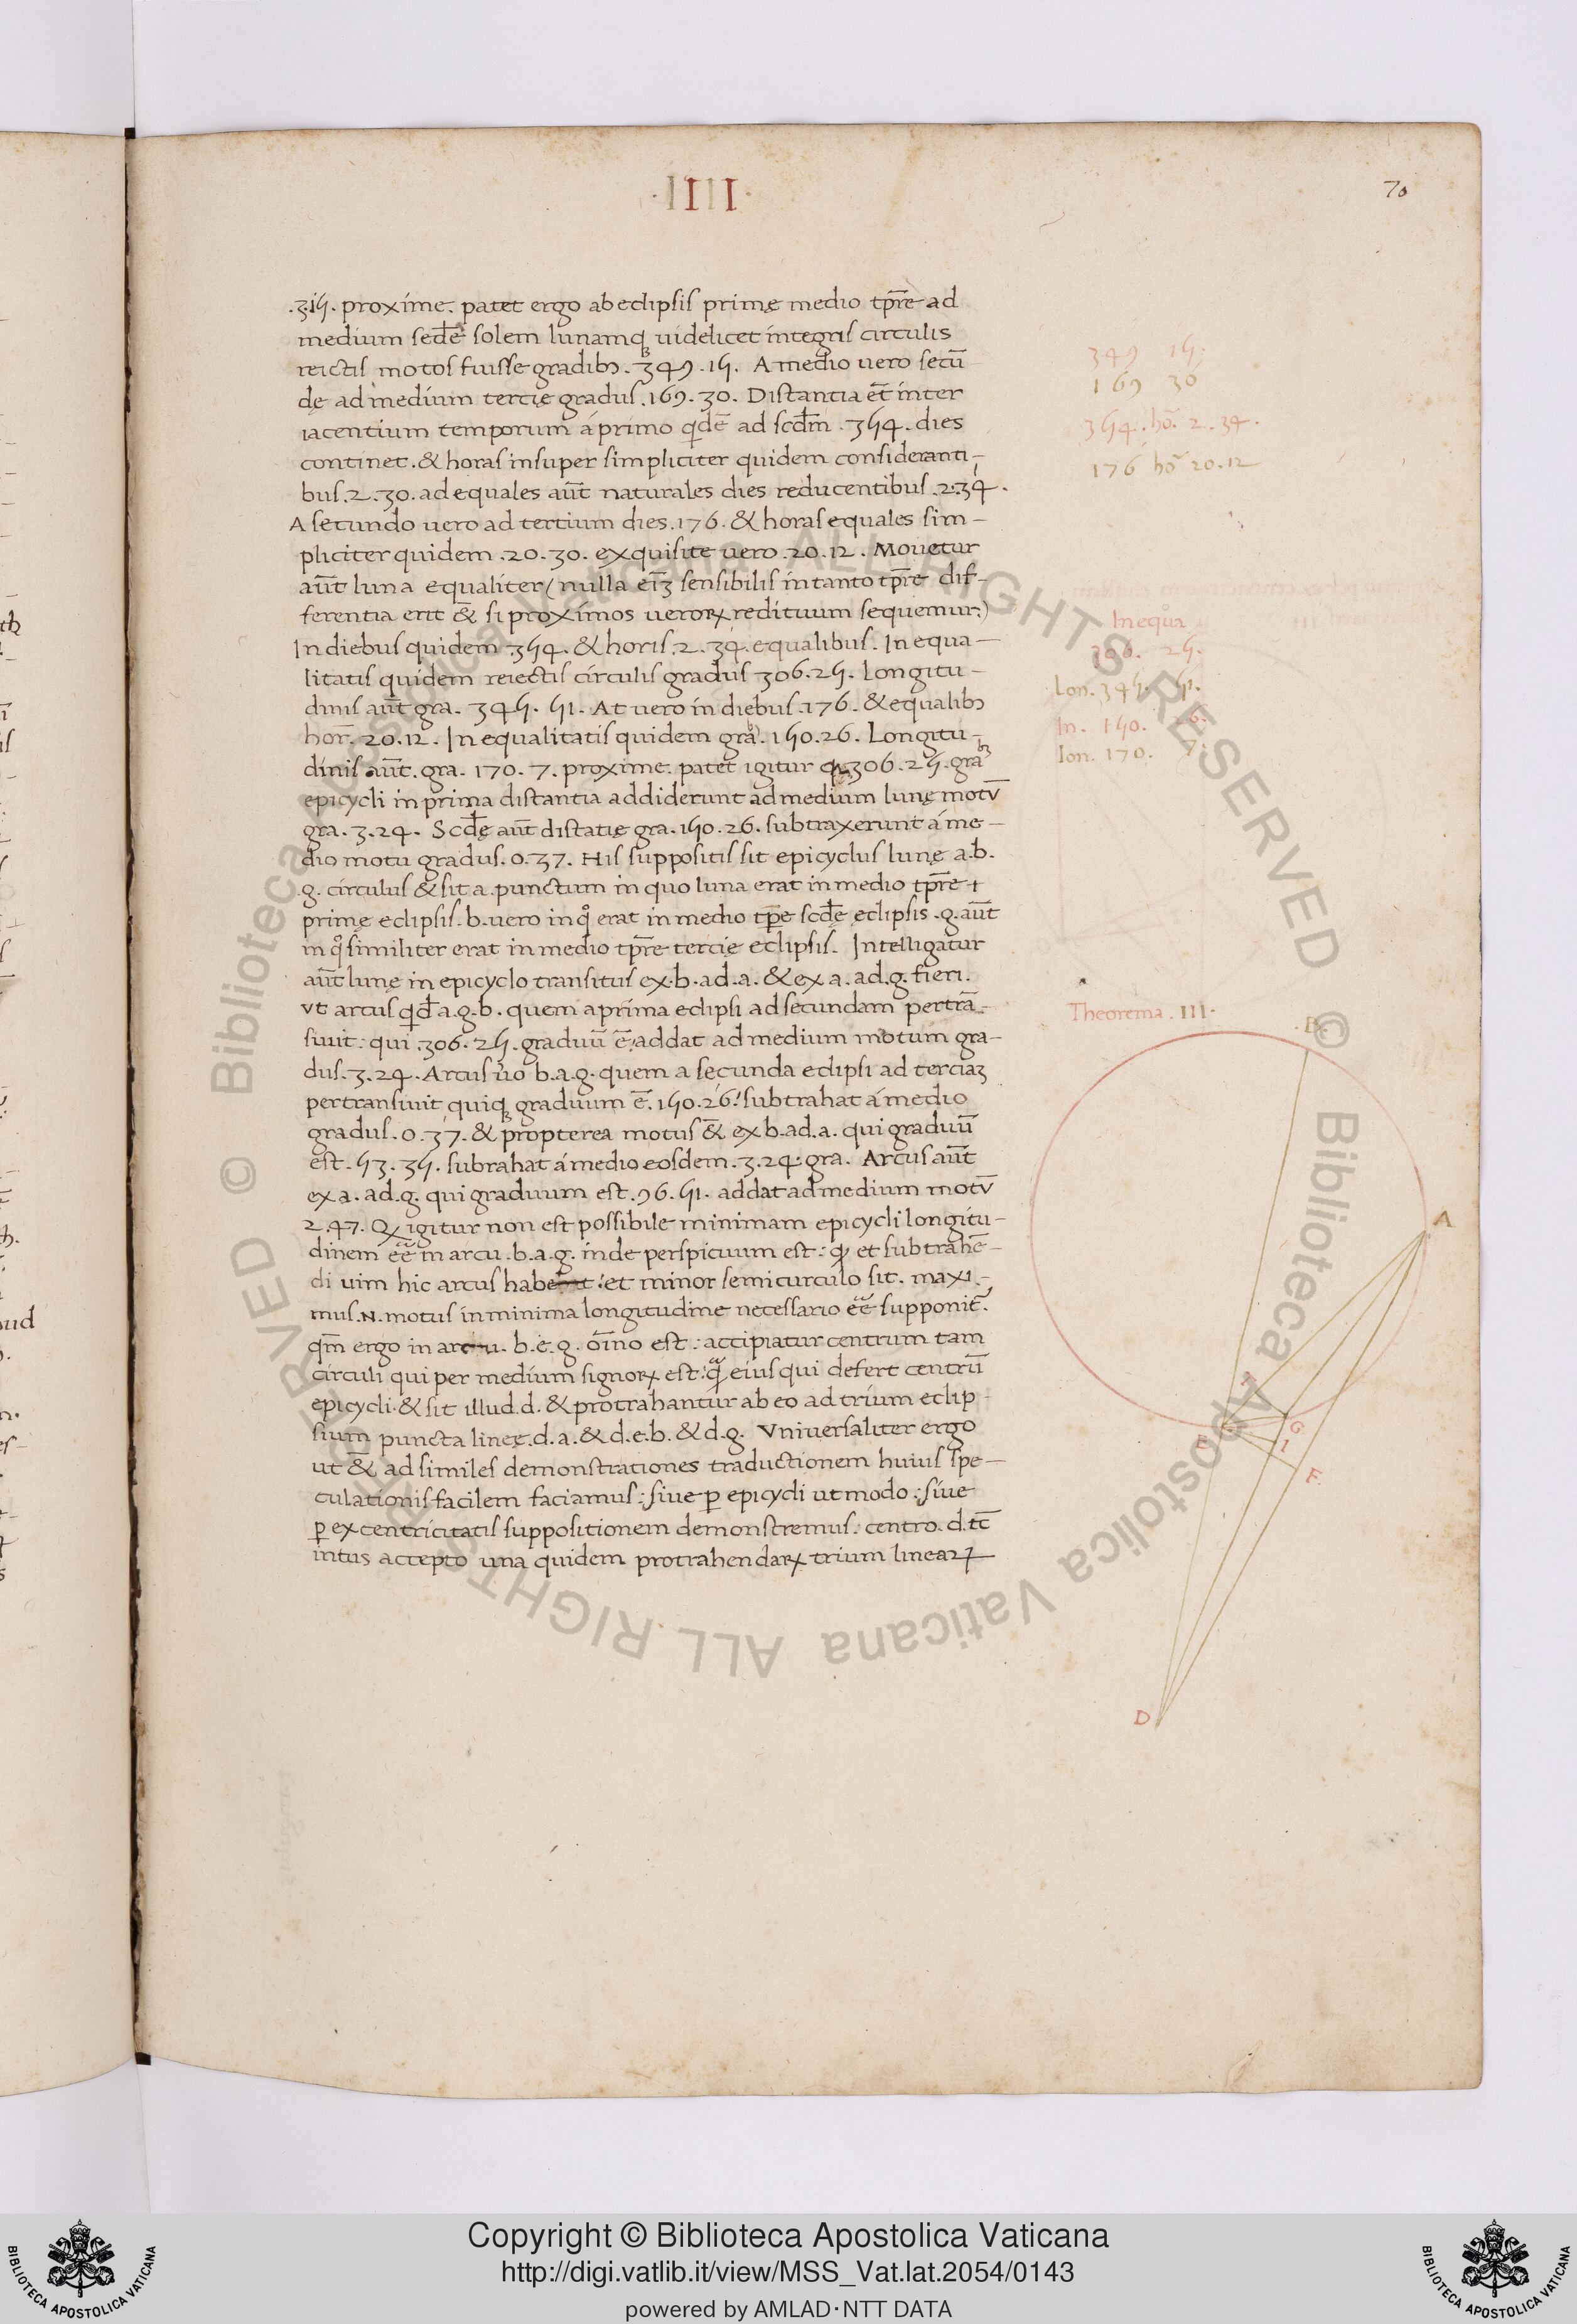 ·IIII·
70
.3.15. proxime. patet ergo ab eclipsis primę medio tp̄re ad
medium secd̄ę solem lunamqꝫ uidelicet integris circulis
reiectis motos fuisse gradibꝫ. 349.15. A medio uero secū
dę ad medium tercię gradus .169.30. Distantia et̄ inter
iacentium temporum á primo qidē ad scd̄m .354. dies
continet. & horas insuper simpliciter quidem consideranti-
bus .2.30. ad equales aūt naturales dies reducentibus .2.34.
A secundo uero ad tertium dies .176. & horas equales sim-
pliciter quidem .20.30. exquisite uero .20.12. Mouetur
aūt luna equaliter (nulla eī3 sensibilis in tanto tp̄re dif-
ferentia erit &̄ si proximos ueroꝝ redituum sequemur:)
In diebus quidem .354. & horis .2.34. equalibus. In equa-
litatis quidem reiectis circulis gradus 306.25. Longitu-
dinis aūt gra. 345.51. At uero in diebus .176. & equalibꝫ
hor̄. 20.12. In equalitatis quidem gra. 150.26. Longitu-
dinis aūt. gra. 170.7. proxime. patet igitur ꝙ 306.25. graꝫ
epicycli in prima distantia addiderunt ad medium lunę motū
gra. 3.24. Scd̄ę aūt distatię gra. 150.26. subtraxerunt á me-
dio motu gradus .0.37. His suppositis sit epicyclus lunę a.b.
g. circulus & sit a. punctum in quo luna erat in medio tp̄re +
primę eclipsis. b. uero in qo erat in medio tp̄e scd̄ę eclipsis .g. aūt
in qo similiter erat in medio tp̄re tercię eclipsis. Intelligatur
aūt lunę in epicyclo transitus ex .b. ad .a. & ex a. ad .g. fieri.
Vt arcus qid̄ a.g.b. quem a prima eclipsi ad secundam pertrā-
siuit: qui .306.25. graduū ē: addat ad medium motum gra-
dus .3.24. Arcus ůo b.a.g. quem a secunda eclipsi ad terciaꝫ
pertransiuit quiqꝫ graduum ē. 150.26: subtrahat á medio
gradus .0.37. & propterea motus &̄ ex b. ad .a. qui graduū
est .53.35. subrahat á medio eosdem .3.24. gra. Arcus aūt
ex a. ad .g. qui graduum est .96.51. addat ad medium motū
2.47. Ꝙ igitur non est possibile minimam epicycli longitu-
dinem eē̄ in arcu .b.a.g. inde perspicuum est: ꝙ et subtrahē-
di uim hic arcus habet: et minor semicirculo sit. maxi-
mus .N. motus in minima longitudine necessario eē̄ supponit̄.
qm̄ ergo in arcu. b.e.g. oīno est: accipiatur centrum tam
circuli qui per medium signoꝝ est: q̄ eius qui defert centrū
epicycli. & sit illud .d. & protrahantur ab eo ad trium eclip
sium puncta lineę .d.a. & d.e.b. & d.g. Vniuersaliter ergo
ut &̄ ad similes demonstrationes traductionem huius spe-
culationis facilem faciamus: siue ꝑ epicycli ut modo: siue
ꝑ excentricitatis suppositionem demonstremus: centro .d. tc̄
intus accepto una quidem protrahendaꝝ trium lineaꝝ
349 15.
169 30
354. ho. 2.34.
176 ho 20.12
Inequa
306. 25.
Lon. 345. 51.
In. 150. 26.
lon. 170. 7.
Theorema .III.
.B.
A
G
E
I
F
D
Copyright © Biblioteca Apostolica Vaticana
http://digi.vatlib.it/view/MSS_Vat.lat.2054/0143
powered by AMLAD·NTT DATA
BIBLIOTECA APOSTOLICA VATICANA
BIBLIOTECA APOSTOLICA VATICANA
© Biblioteca Apostolica Vaticana ALL RIGHTS RESERVED © Biblioteca Apostolica Vaticana ALL RIGHTS RESERVED